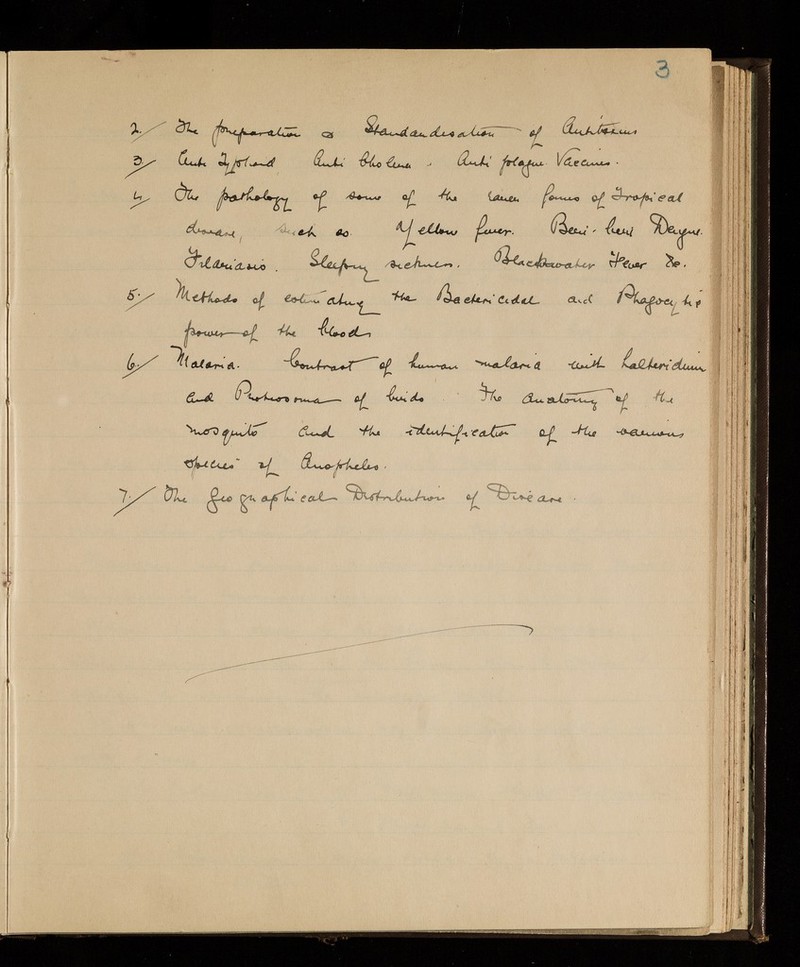 3
2. The preparation & Standardisation of Antitoxins
3. Anti Typhoid Anti Cholera & Anti plague Vaccines.
4. The pathology of some of the rarer forms of Tropical
disease, such as Yellow fever. Beri-beri Dengue.
Filariasis. Sleeping sickness. Blackwater Fever &c.
5. Methods of estimating the Bactericidal and Phagocytic
power of the blood
6. Malaria. Contrast of human malaria with halteridium
and Proteosoma of birds The anatomy of the
mosquito and the identification of the various
species of Anopheles.
7. The Geographical Distribution of Disease.